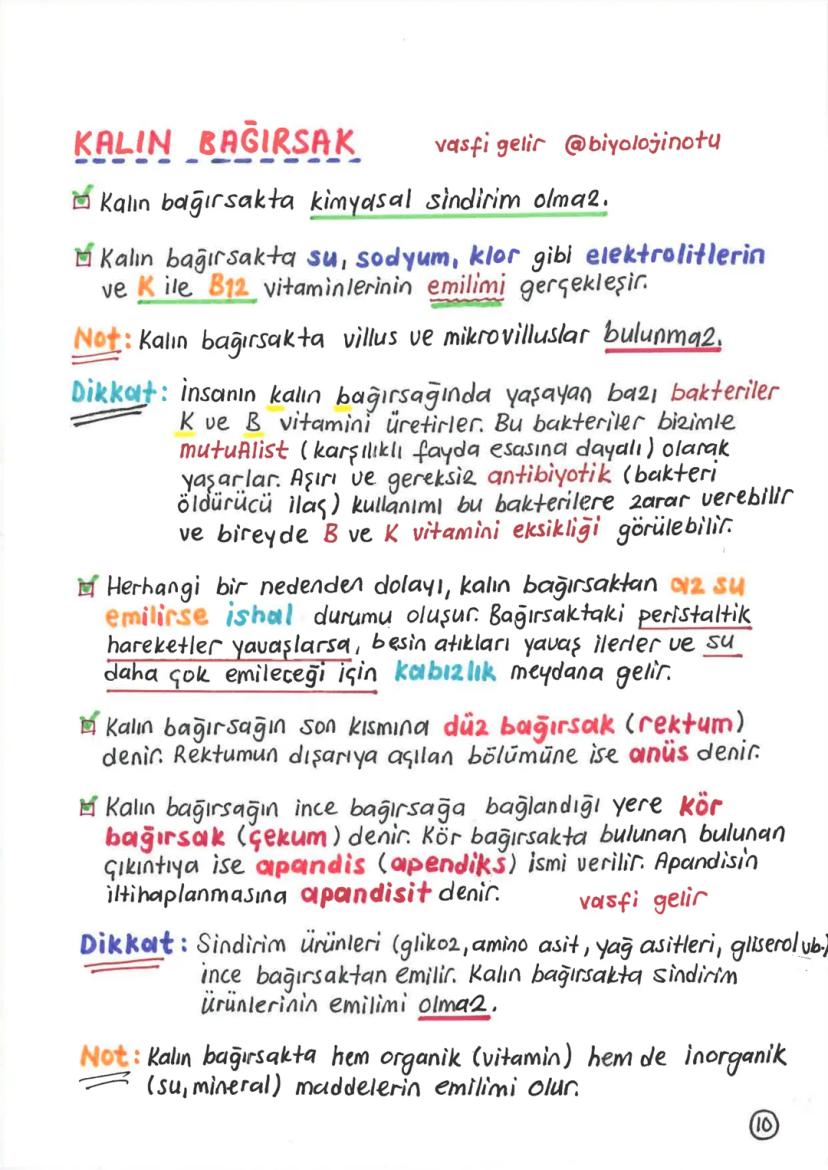 KALIN BAĞIRSAK vasfi gelir @biyolojinotu
Kalın bağırsakta kimyasal sindirim olmaz.
Kalın bağırsakta su, sodyum, klor gibi elektrolitlerin
ve K ile B12 vitaminlerinin emilimi gerçekleşir.
Not: Kalın bağırsakta villus ve mikrovilluslar bulunmaz.
Dikkat: İnsanın kalın bağırsağında yaşayan bazı bakteriler
K ve B vitamini üretirler. Bu bakteriler bizimle
mutuAlist (karşılıklı fayda esasına dayalı) olarak
yaşarlar. Aşırı ve gereksiz antibiyotik (bakteri
öldürücü ilaç) kullanımı bu bakterilere zarar verebilir
ve bireyde B ve K vitamini eksikliği görülebilir.
Herhangi bir nedenden dolayı, kalın bağırsaktan az su
emilirse ishal durumu oluşur. Bağırsaktaki peristaltik
hareketler yavaşlarsa, besin atıkları yavaş ilerler ve su
daha çok emileceği için kabızlık meydana gelir.
Kalın bağırsağın son kısmına düz bağırsak (rektum)
denir. Rektumun dışarıya açılan bölümüne ise anüs denir.
Kalın bağırsağın ince bağırsağa bağlandığı yere kör
bağırsak (çekum) denir. Kör bağırsakta bulunan bulunan
çıkıntıya ise apandis (apendiks) ismi verilir. Apandisin
iltihaplanmasına apandisit denir. vasfi gelir
Dikkat: Sindirim ürünleri (glikoz, amino asit, yağ asitleri, gliserol vb.)
ince bağırsaktan emilir. Kalın bağırsakta sindirim
ürünlerinin emilimi olmaz.
Not: Kalın bağırsakta hem organik (vitamin) hem de inorganik
(su, mineral) maddelerin emilimi olur.
10